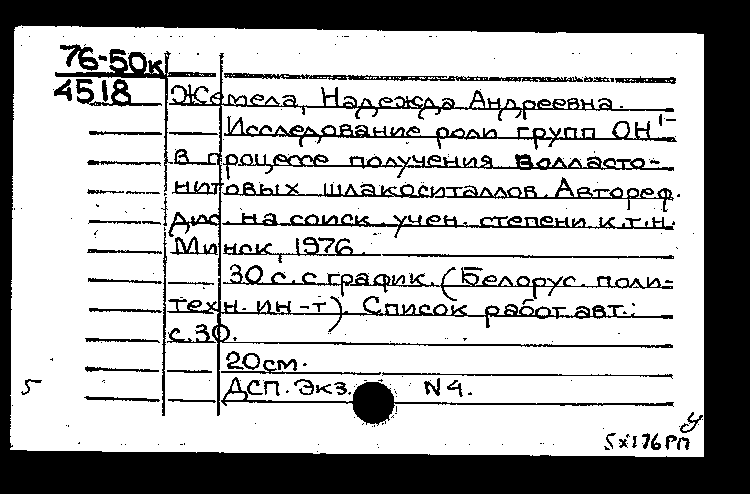 76-50к
4518
Жемела, Надежда Андреевна.
Исследование роли групп ОН¹⁻
в процессе получения волласто-
нитовых шлакоситаллов. Автореф.
дис. на соиск. учен. степени к.т.н.
Минск, 1976.
30 с. с график. (Белорус. поли-
техн. ин-т). Список работ авт.:
с. 30.
20см.
5 ДСП. Экз. N4.
у
5x176РП